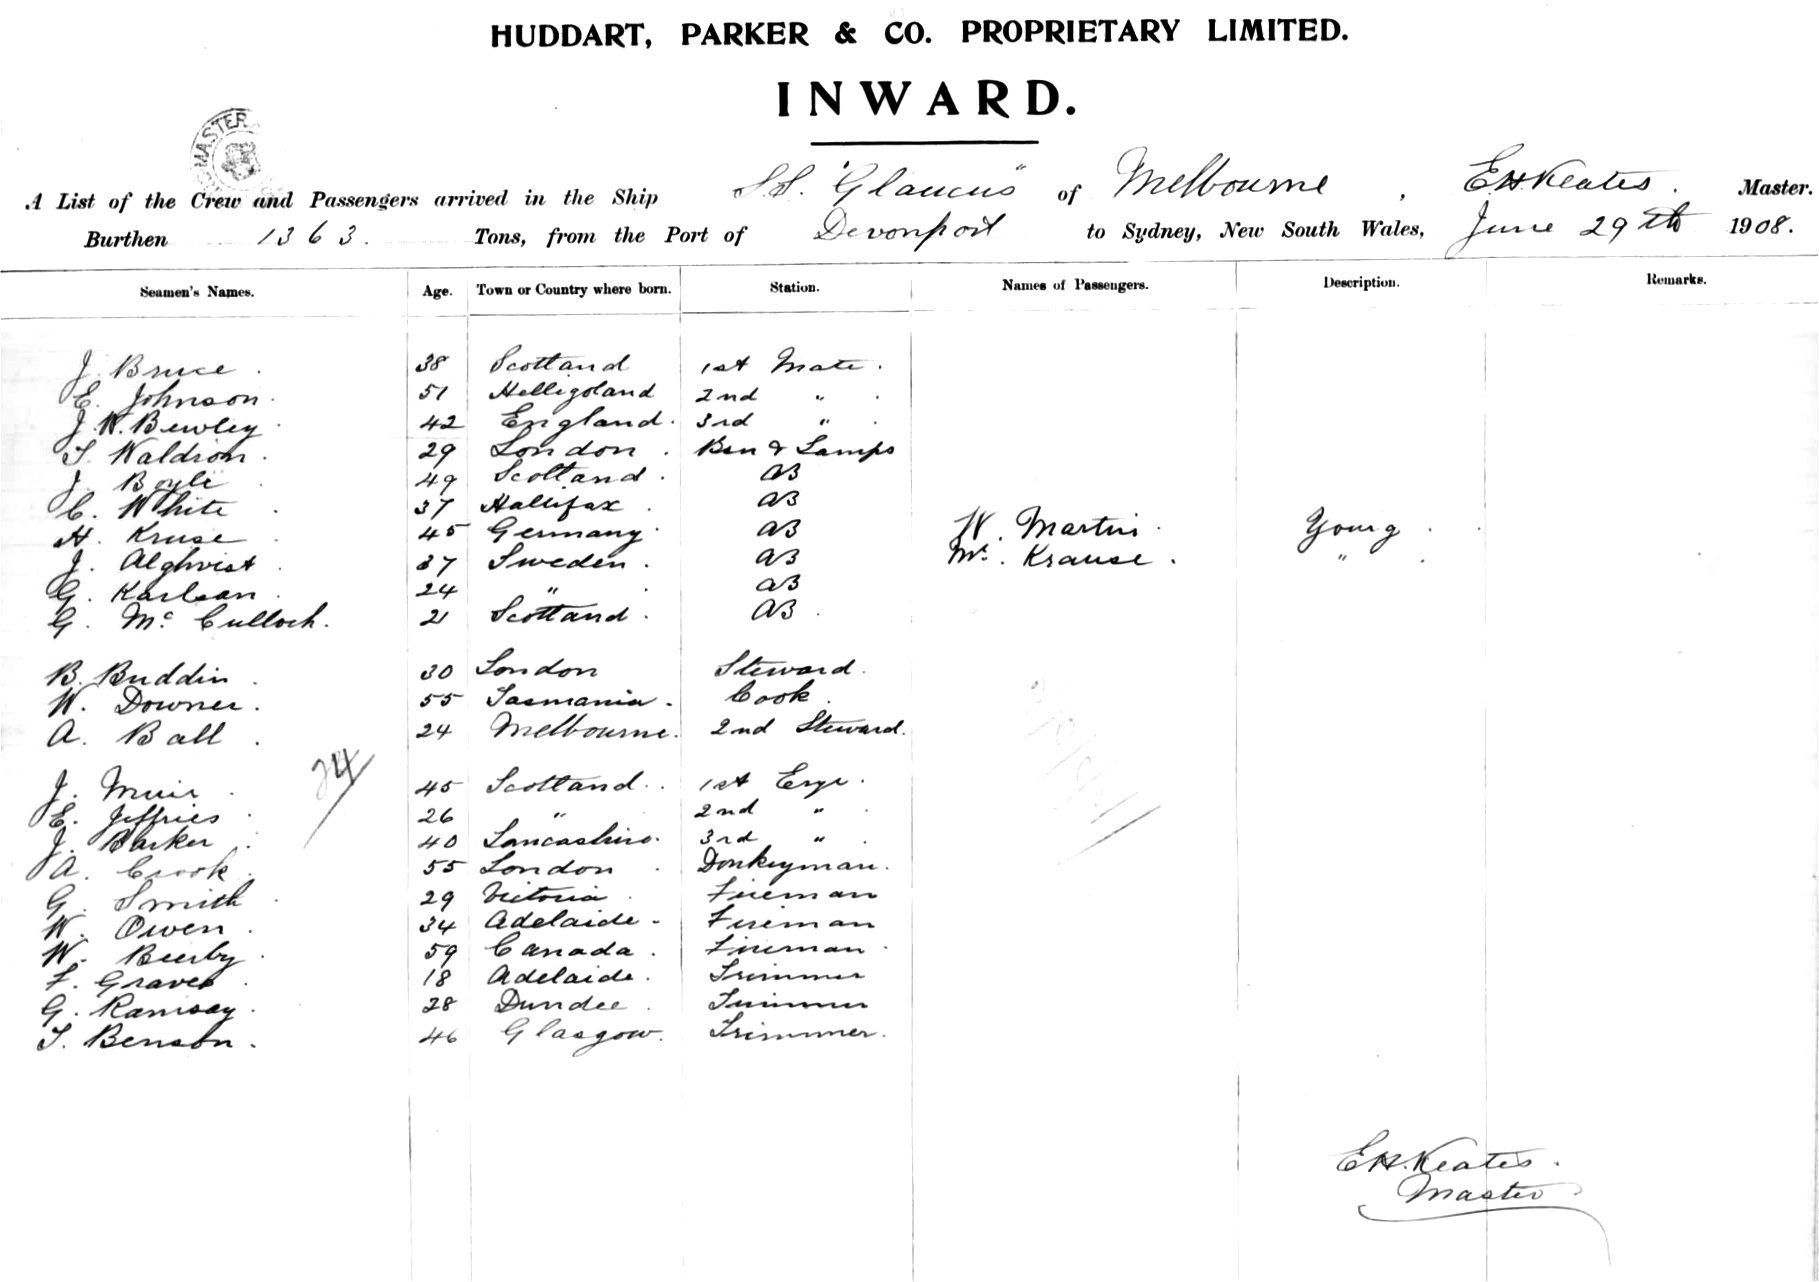 HUDDART, PARKER & CO. PROPRIETARY LIMITED.
INWARD.
MASTER
A List of the Crew and Passengers arrived in the Ship S.S. "Glaucus" of Melbourne, E.H. Keates. Master.
Burthen 1363. Tons, from the Port of Devonport to Sydney, New South Wales, June 29th 1908.
Seamen's Names. Age. Town or Country where born. Station. Names of Passengers. Description. Remarks.
J. Bruce. 38 Scotland 1st Mate.
E. Johnson. 51 Helligoland 2nd " .
J. W. Bewley. 42 England. 3rd " .
T. Waldron. 29 London. Bsn & Lamps
J. Boyle. 49 Scotland. AB
C. White. 37 Hallifax. AB
H. Kruse. 45 Germany. AB W. Martin. Young.
J. Alghvist. 37 Sweden. AB Mr. Krause. " .
G. Karlson. 24 " . AB
G. McCulloch. 21 Scotland. AB.
B. Buddin. 30 London Steward.
W. Downer. 55 Tasmania. Cook.
A. Ball. 24 Melbourne. 2nd Steward.
24/
J. Muir. 45 Scotland. 1st Engr.
E. Jeffries. 26 " 2nd " .
J. Barker. 40 Lancashire. 3rd " .
A. Crook. 55 London. Donkeyman.
G. Smith. 29 Victoria. Fireman
W. Owen. 34 Adelaide. Fireman
W. Beerby. 59 Canada. Fireman.
F. Graves. 18 Adelaide. Trimmer
G. Ramsay. 28 Dundee. Trimmer
T. Benson. 46 Glasgow. Trimmer.
E.H. Keates.
Master